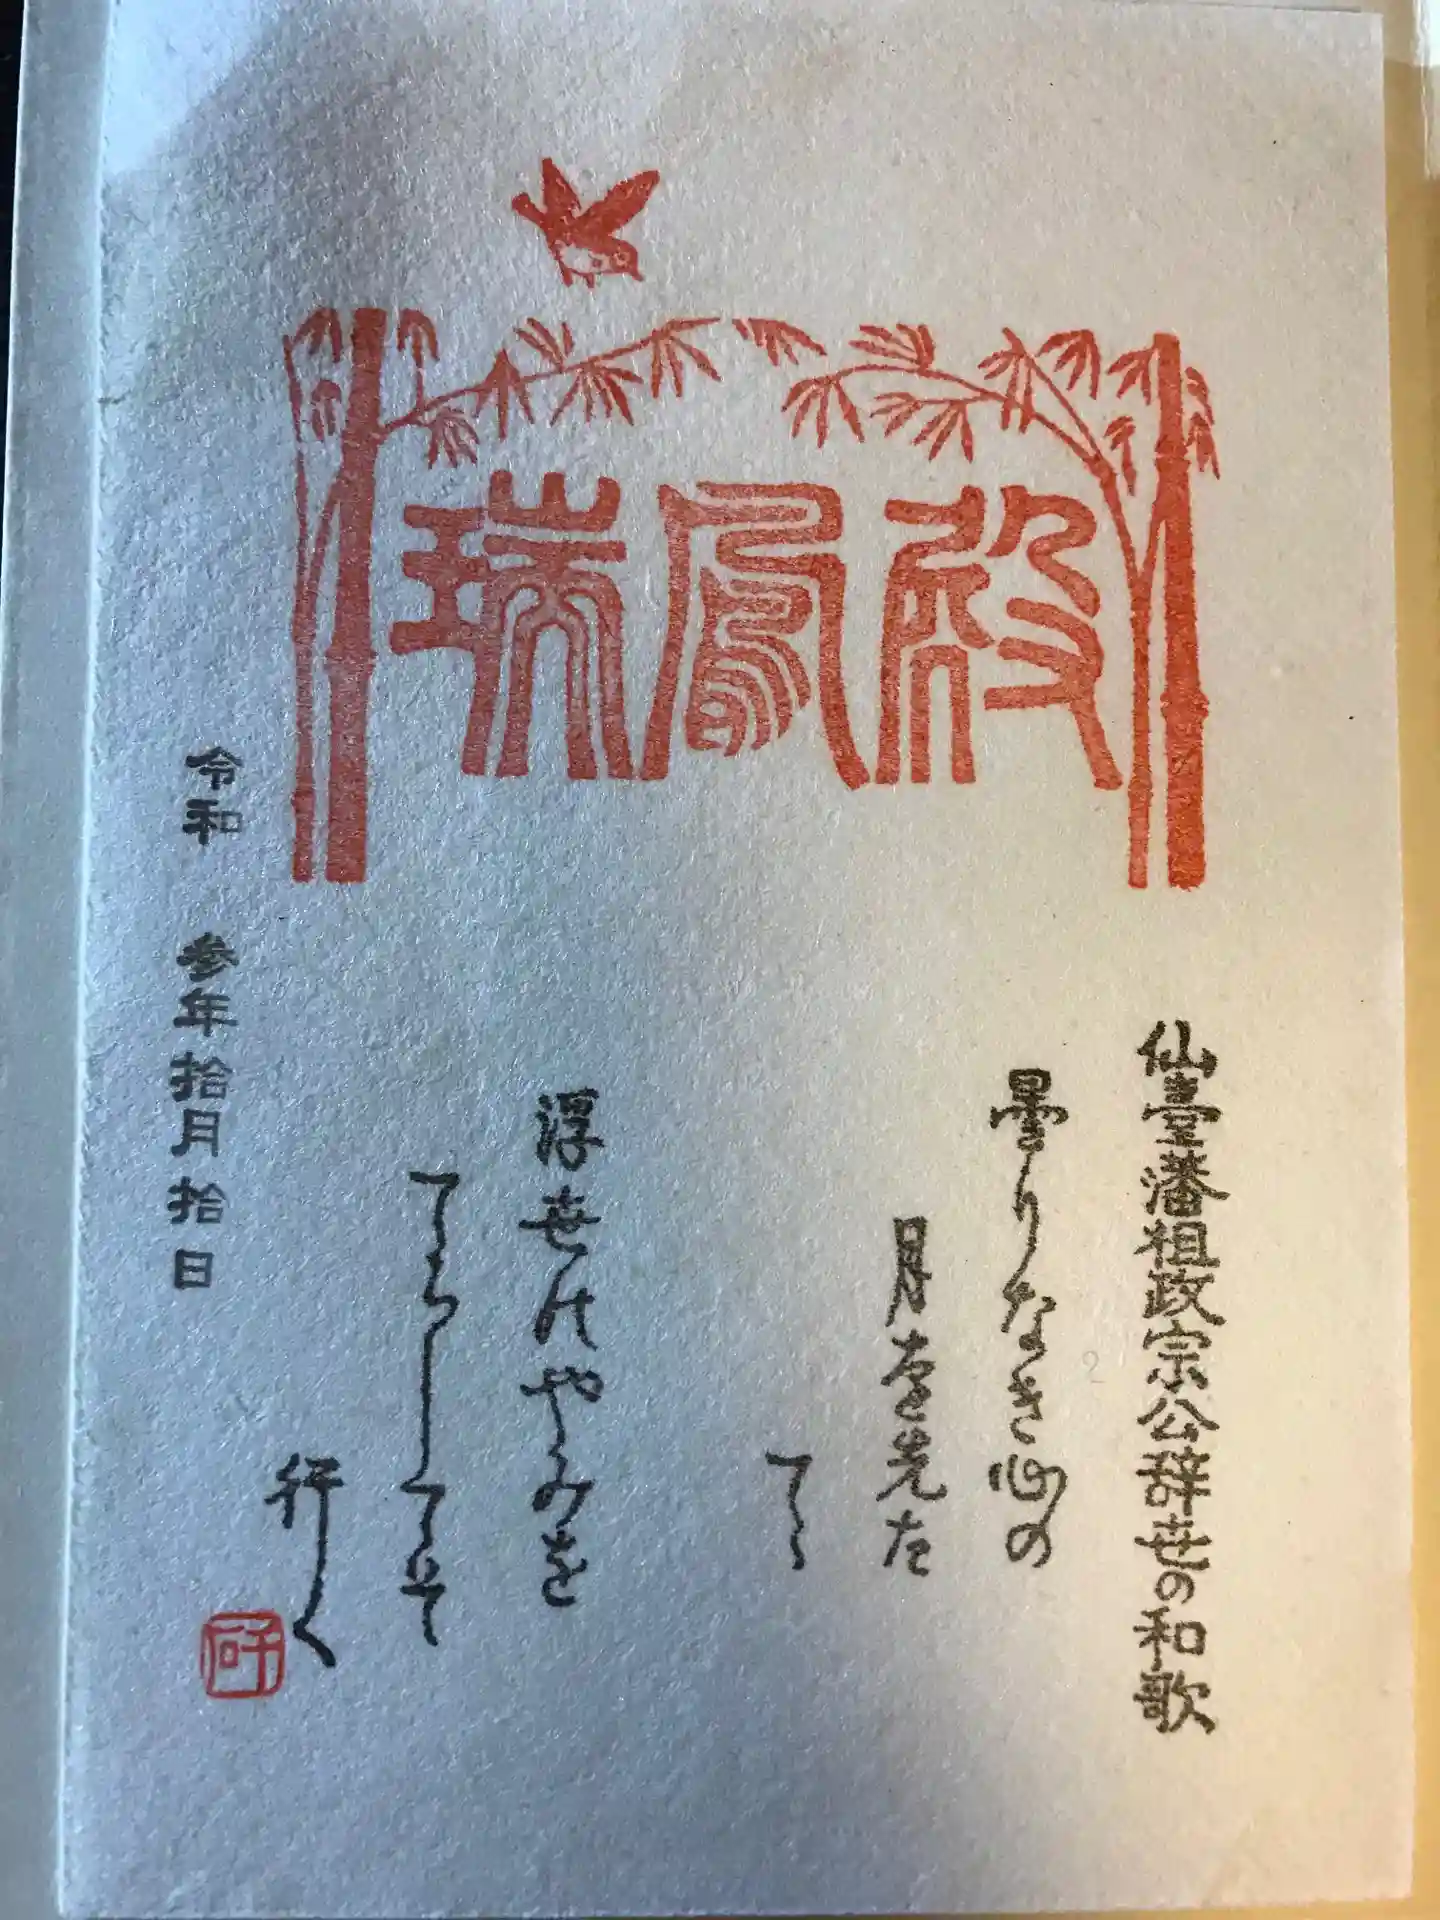 瑞鳳殿
仙臺藩祖政宗公辞世の和歌
曇りなき心の
月を先だ
てゝ
浮世のやみを
てらしてぞ
行く
令和 参年拾月拾日